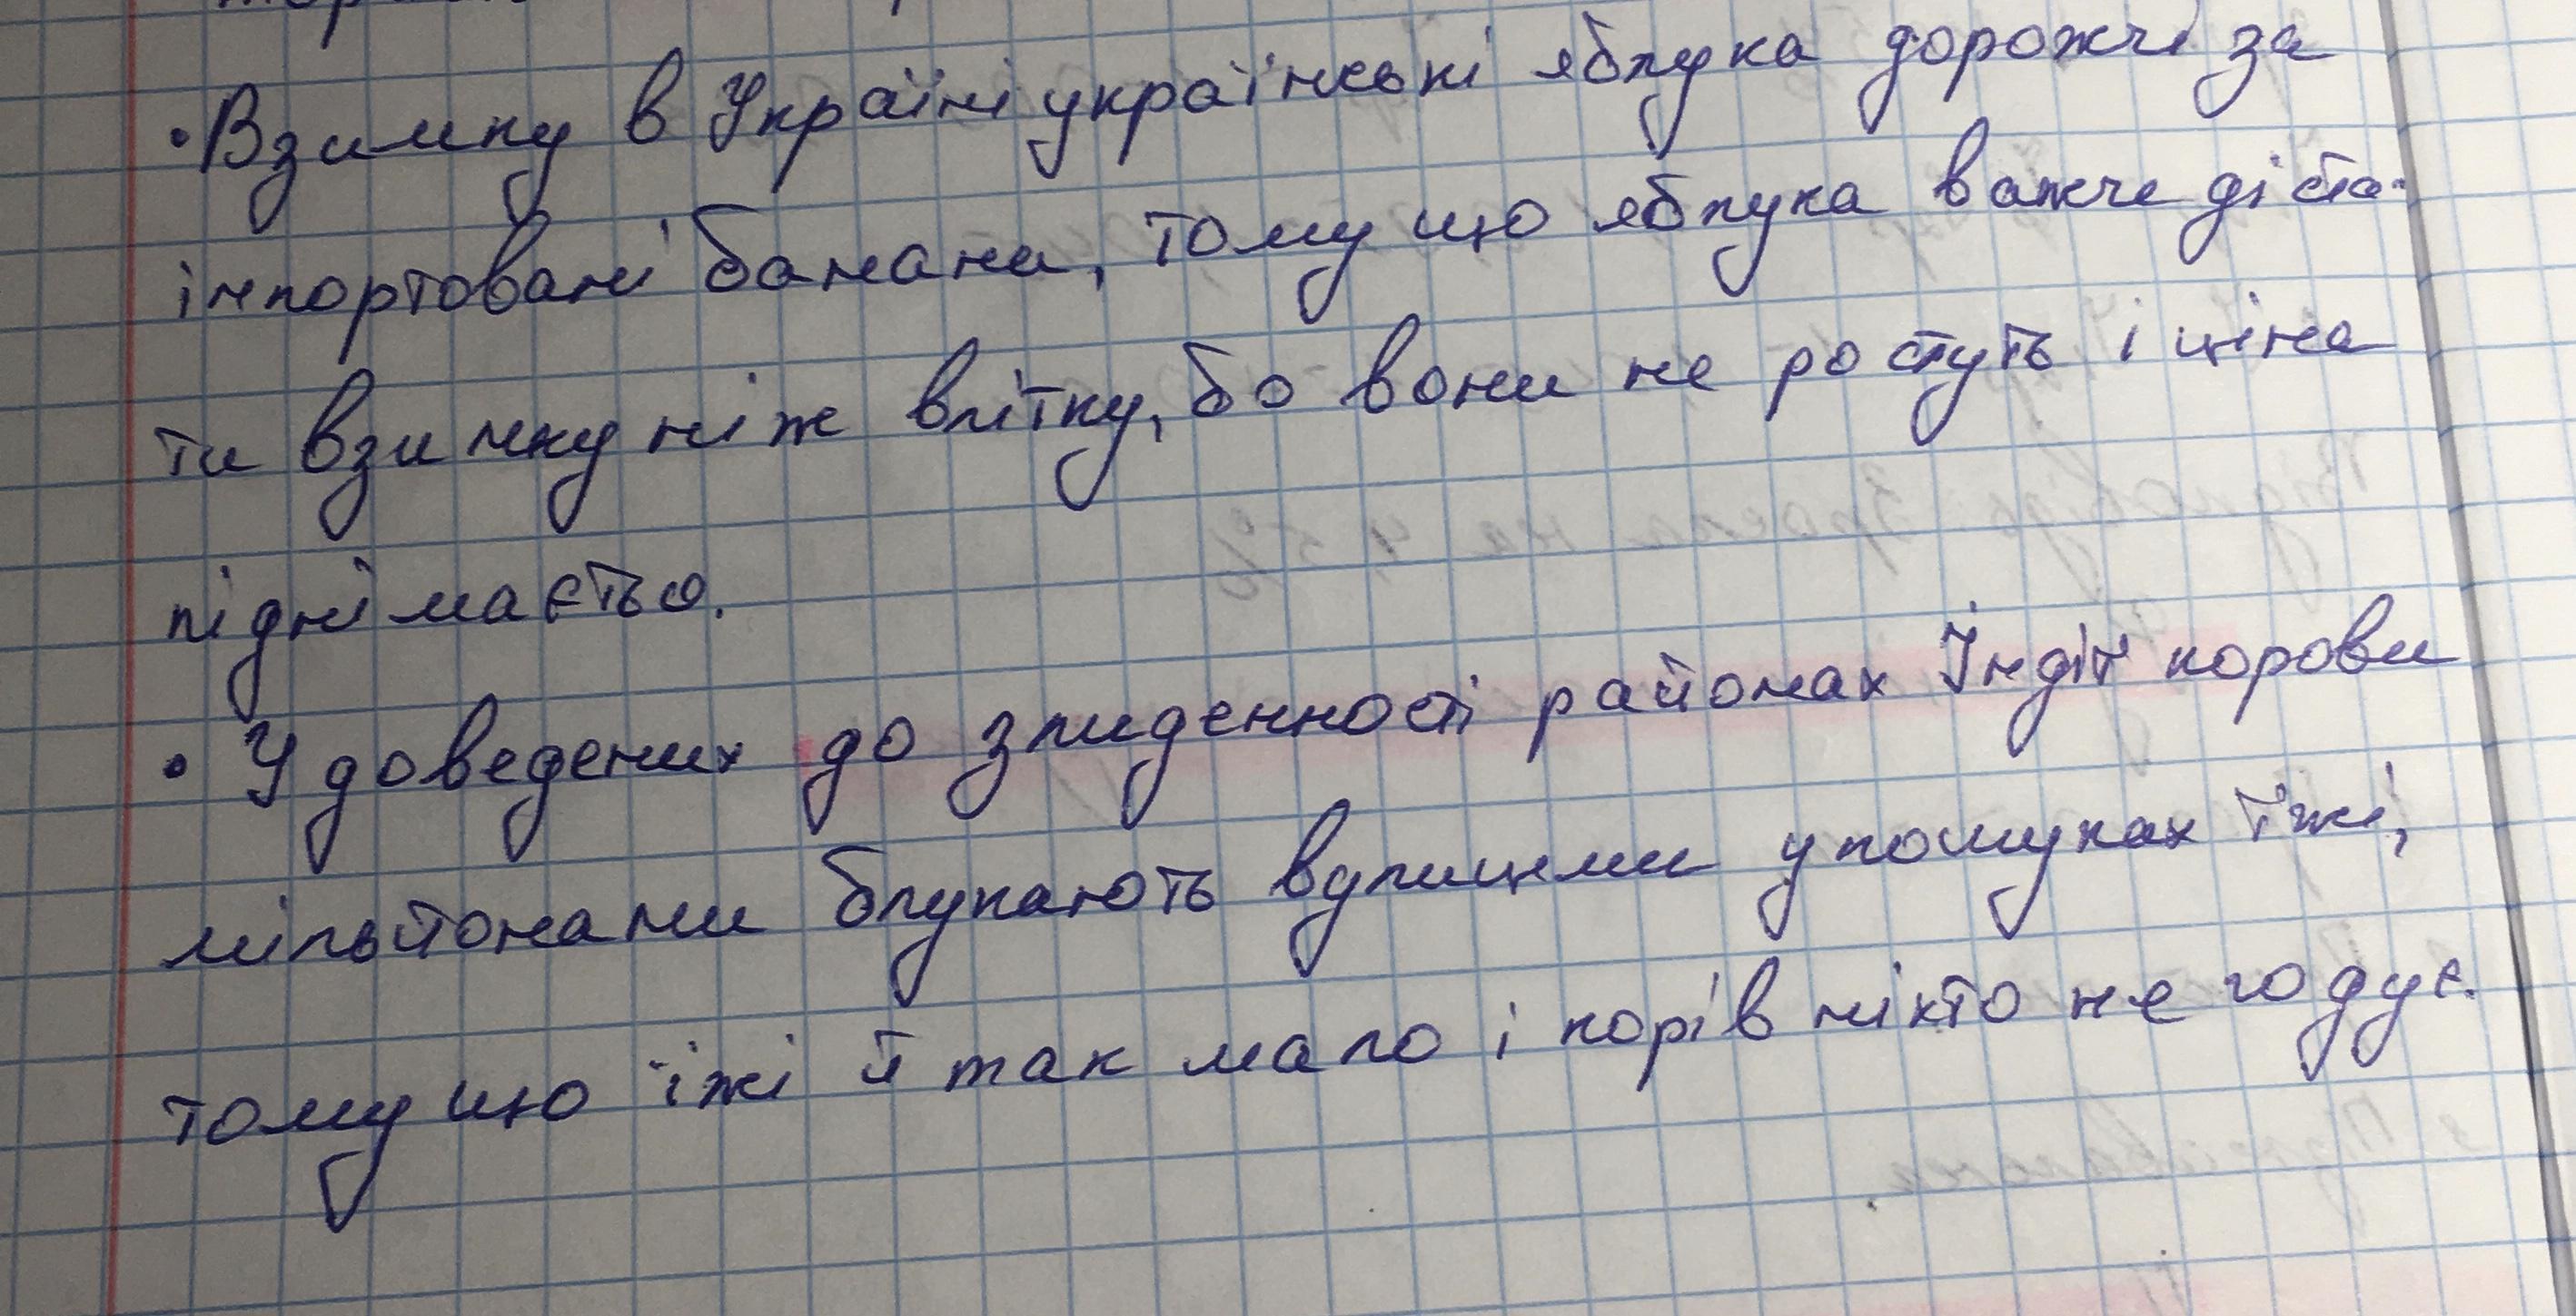 • Взимку в Україні українські яблука дорожчі за
інпортовані банани, тому що яблука важче діста-
ти взимку ніж влітку, бо вони не ростуть і ціна
піднімаєтьо.
• У доведених до злиденності районах Індії корови
мільйонами блукають вулицями у пошуках їжі,
тому що їжі й так мало і корів ніхто не годує.